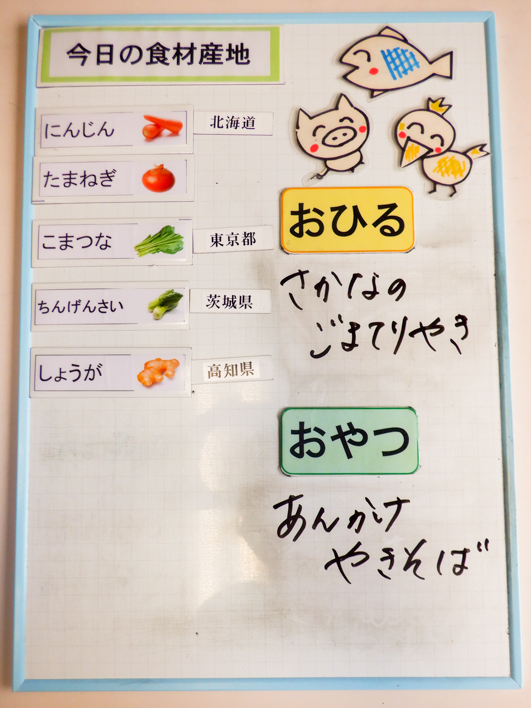 今日の食材産地
にんじん 北海道
たまねぎ
こまつな 東京都
ちんげんさい 茨城県
しょうが 高知県
おひる
さかなの
ごまてりやき
おやつ
あんかけ
やきそば